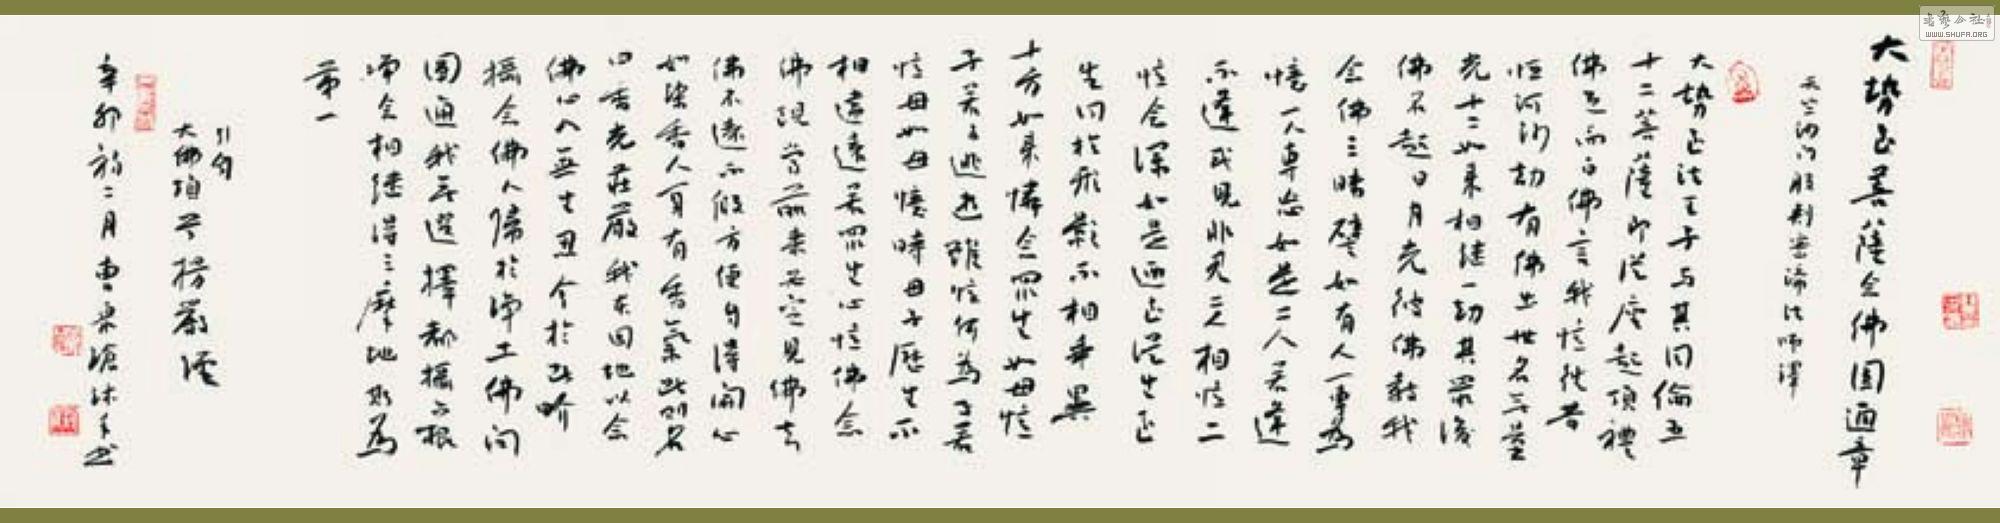 大勢至菩薩念佛圓通章
天竺沙門般剌密諦法師譯
大勢至法王子与其同倫五
十二菩薩即從座起頂禮
佛足而白佛言我憶往昔
恒河沙劫有佛出世名無量
光十二如來相继一劫其最後
佛名超日月光彼佛教我
念佛三昧譬如有人一專為
憶一人專忘如是二人若逢
不逢或見非見二人相憶二
憶念深如是迺至從生至
生同於形影不相乖異
十方如來憐念眾生如母憶
子若子逃逝雖憶何為子若
憶母如母憶時母子歷生不
相違遠若眾生心憶佛念
佛現前當來必定見佛去
佛不遠不假方便自得開心
如染香人身有香氣此則名
曰香光莊嚴我本因地以念
佛心入無生忍今於此界
攝念佛人歸於淨土佛問
圓通我無選擇都攝六根
淨念相继得三摩地斯為
第一
引自
大佛頂首楞嚴經
辛卯初二月曹
沐手书
北藝公社
WWW.SHUFA.ORG